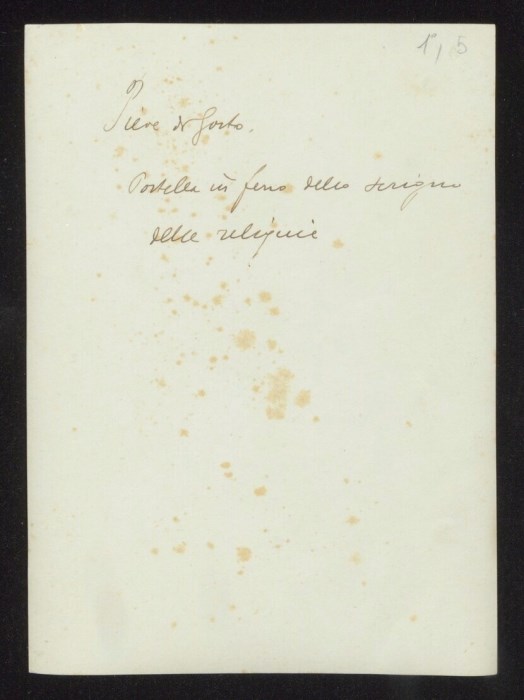 1, 5
Pieve di Gorto.
Portella in ferro dello scrigno
delle reliquie